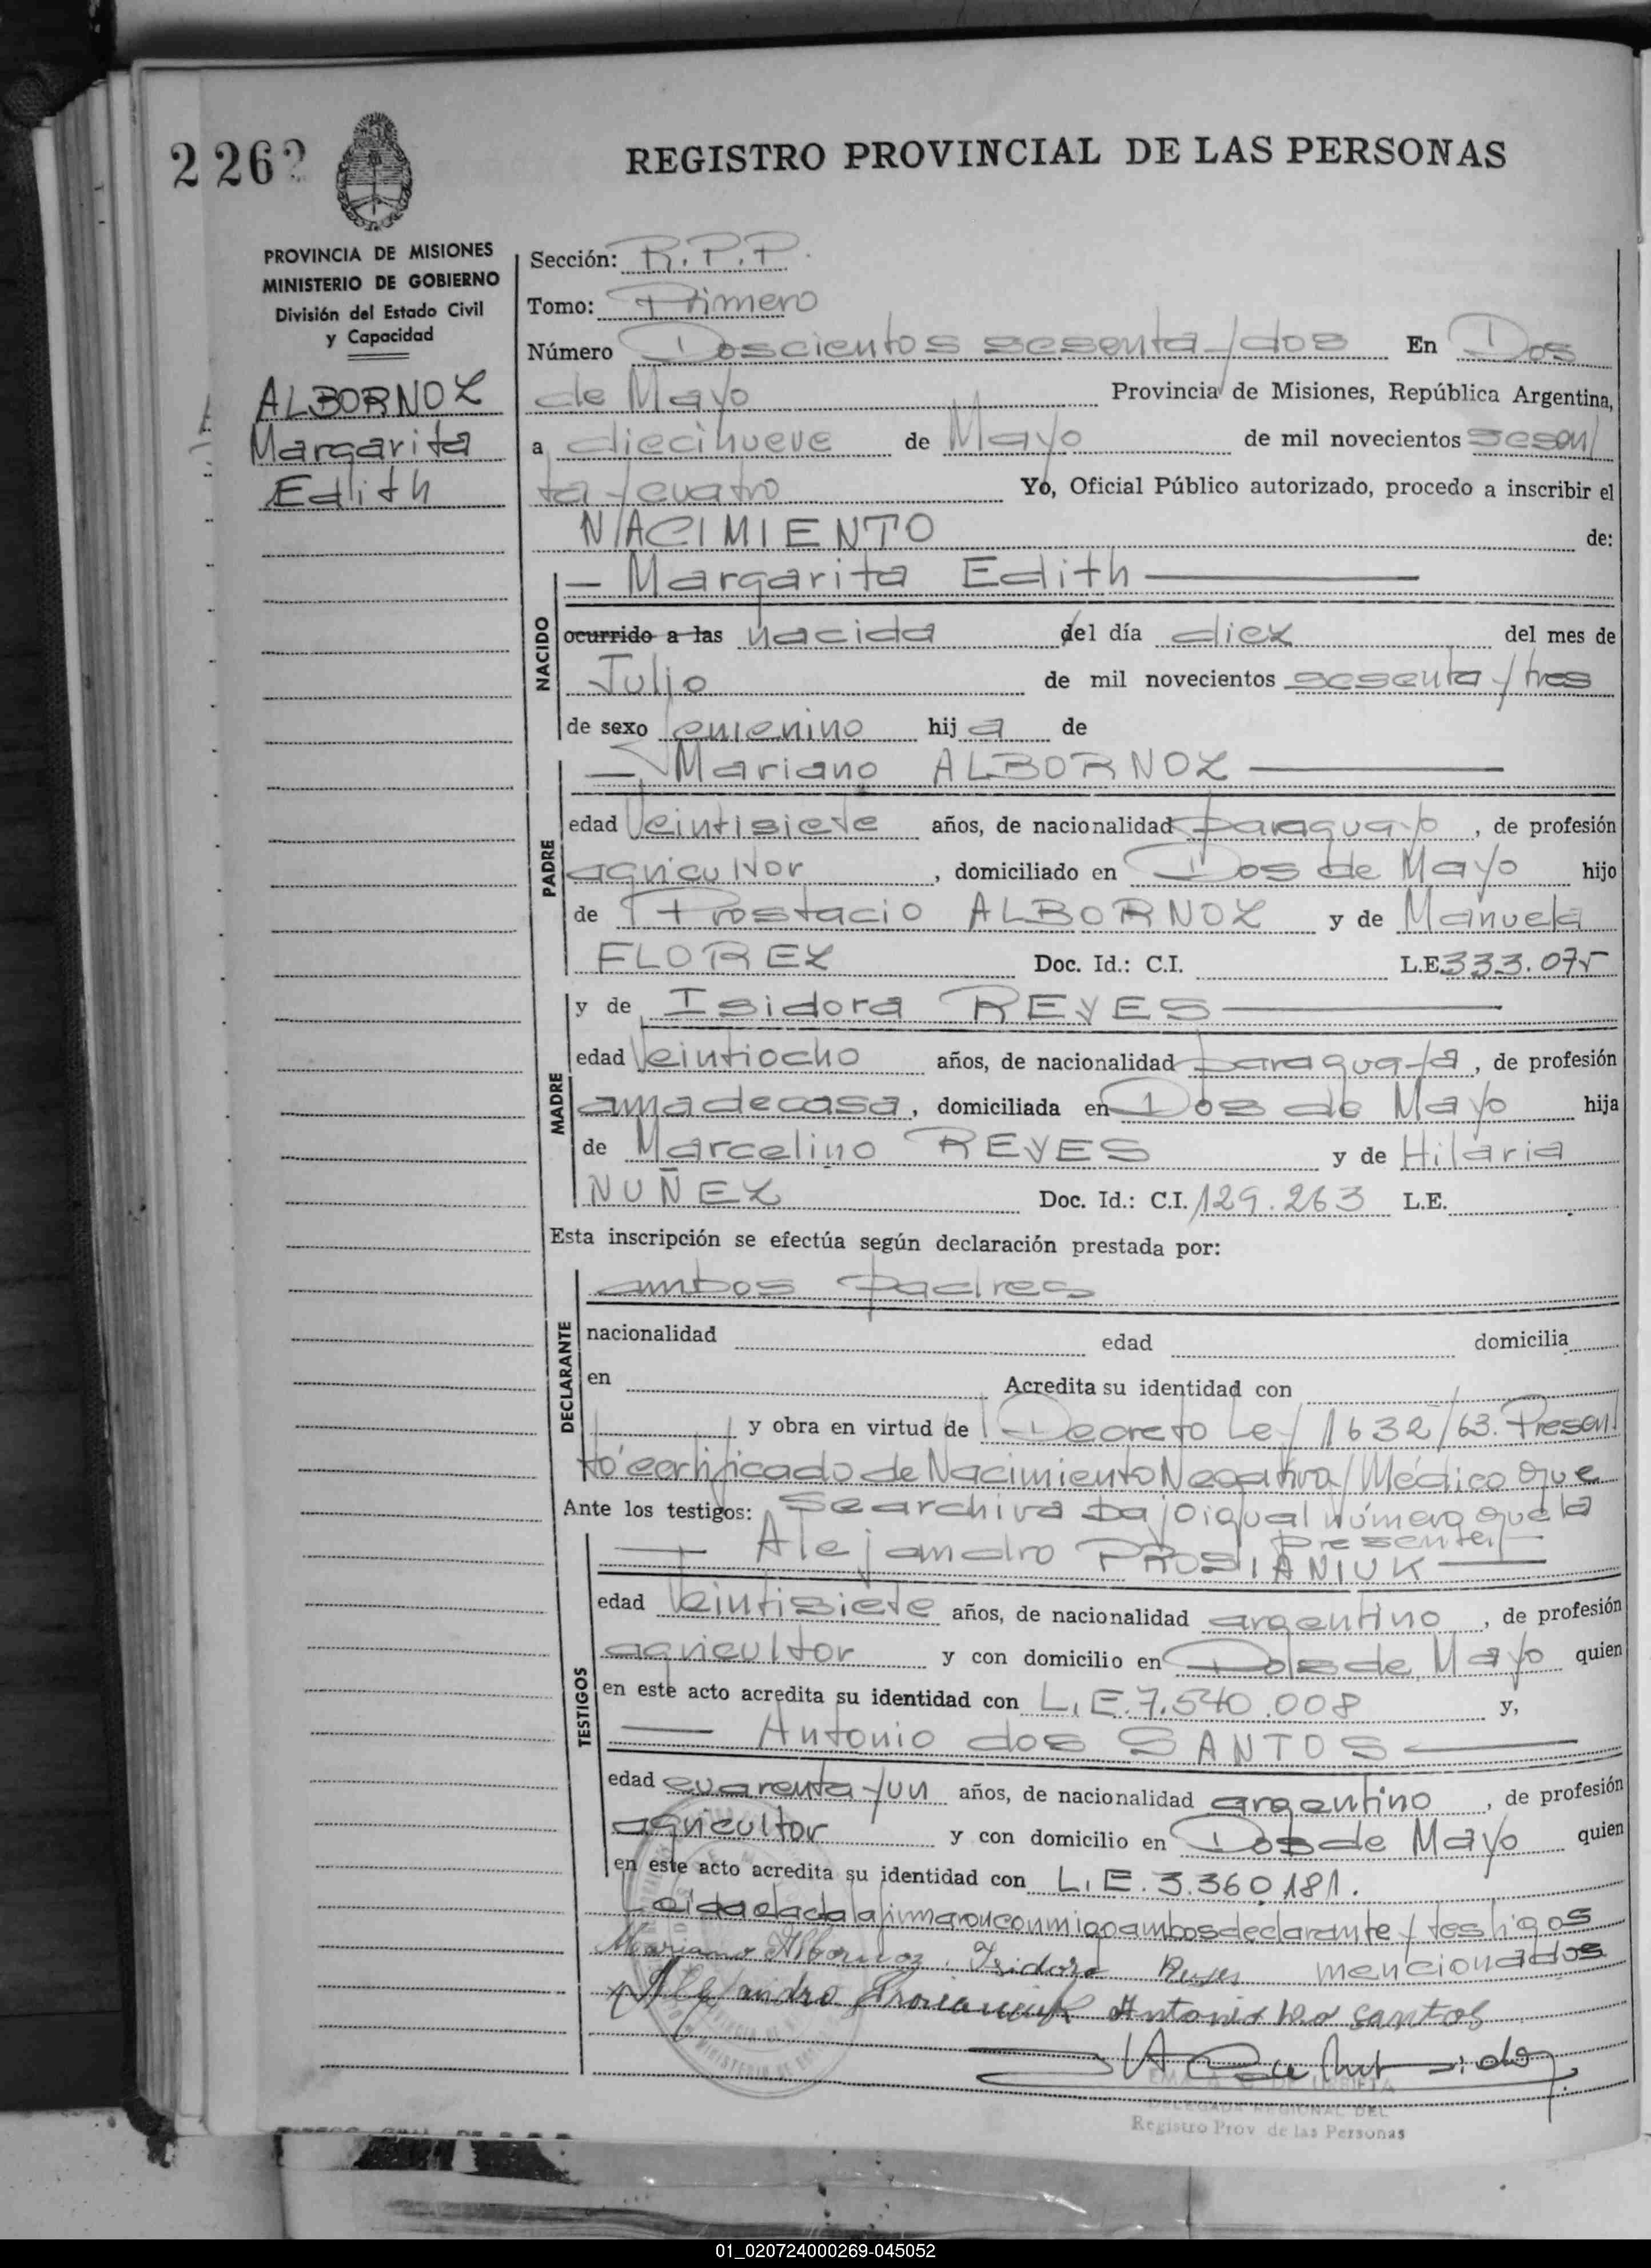 2 262
REGISTRO PROVINCIAL DE LAS PERSONAS
PROVINCIA DE MISIONES
MINISTERIO DE GOBIERNO
División del Estado Civil
y Capacidad
ALBORNOZ
Margarita
Edith
Sección: R.P.P.
Tomo: Primero
Número Doscientos sesenta y dos En Dos
de Mayo Provincia de Misiones, República Argentina,
a diecinueve de Mayo de mil novecientos sesen
ta y cuatro Yo, Oficial Público autorizado, procedo a inscribir el
NACIMIENTO de:
NACIDO
— Margarita Edith —
ocurrido a las nacida del día diez del mes de
Julio de mil novecientos sesenta y tres
de sexo femenino hija de
PADRE
— Mariano ALBORNOZ —
edad veintisiete años, de nacionalidad paraguayo, de profesión
agricultor, domiciliado en Dos de Mayo hijo
de Prostacio ALBORNOZ y de Manuela
FLOREZ Doc. Id.: C.I. L.E. 333.075
MADRE
y de Isidora REYES —
edad veintiocho años, de nacionalidad paraguaya, de profesión
ama de casa, domiciliada en Dos de Mayo hija
de Marcelino REYES y de Hilaria
NUÑEZ Doc. Id.: C.I. 129.263 L.E.
Esta inscripción se efectúa según declaración prestada por:
DECLARANTE
ambos padres
nacionalidad edad domicilia
en Acredita su identidad con
y obra en virtud de Decreto Ley 1632/63. Presen
tó certificado de Nacimiento Negativa y Médico que
Ante los testigos: se archiva bajo igual número que la
presente.
TESTIGOS
— Alejandro PROSIANIUK —
edad veintisiete años, de nacionalidad argentino, de profesión
agricultor y con domicilio en Dos de Mayo quien
en este acto acredita su identidad con L.E. 7.540.008 y,
— Antonio dos SANTOS —
edad cuarenta y un años, de nacionalidad argentino, de profesión
agricultor y con domicilio en Dos de Mayo quien
en este acto acredita su identidad con L.E. 3.360.181.
Leida el acta la firmaron conmigo ambos declarante y testigos
Mariano Albornoz. Isidora Reyes mencionados
Alejandro Prosianiuk Antonio dos santos
DELEGADA REGIONAL DEL
Registro Prov de las Personas
01_020724000269-045052